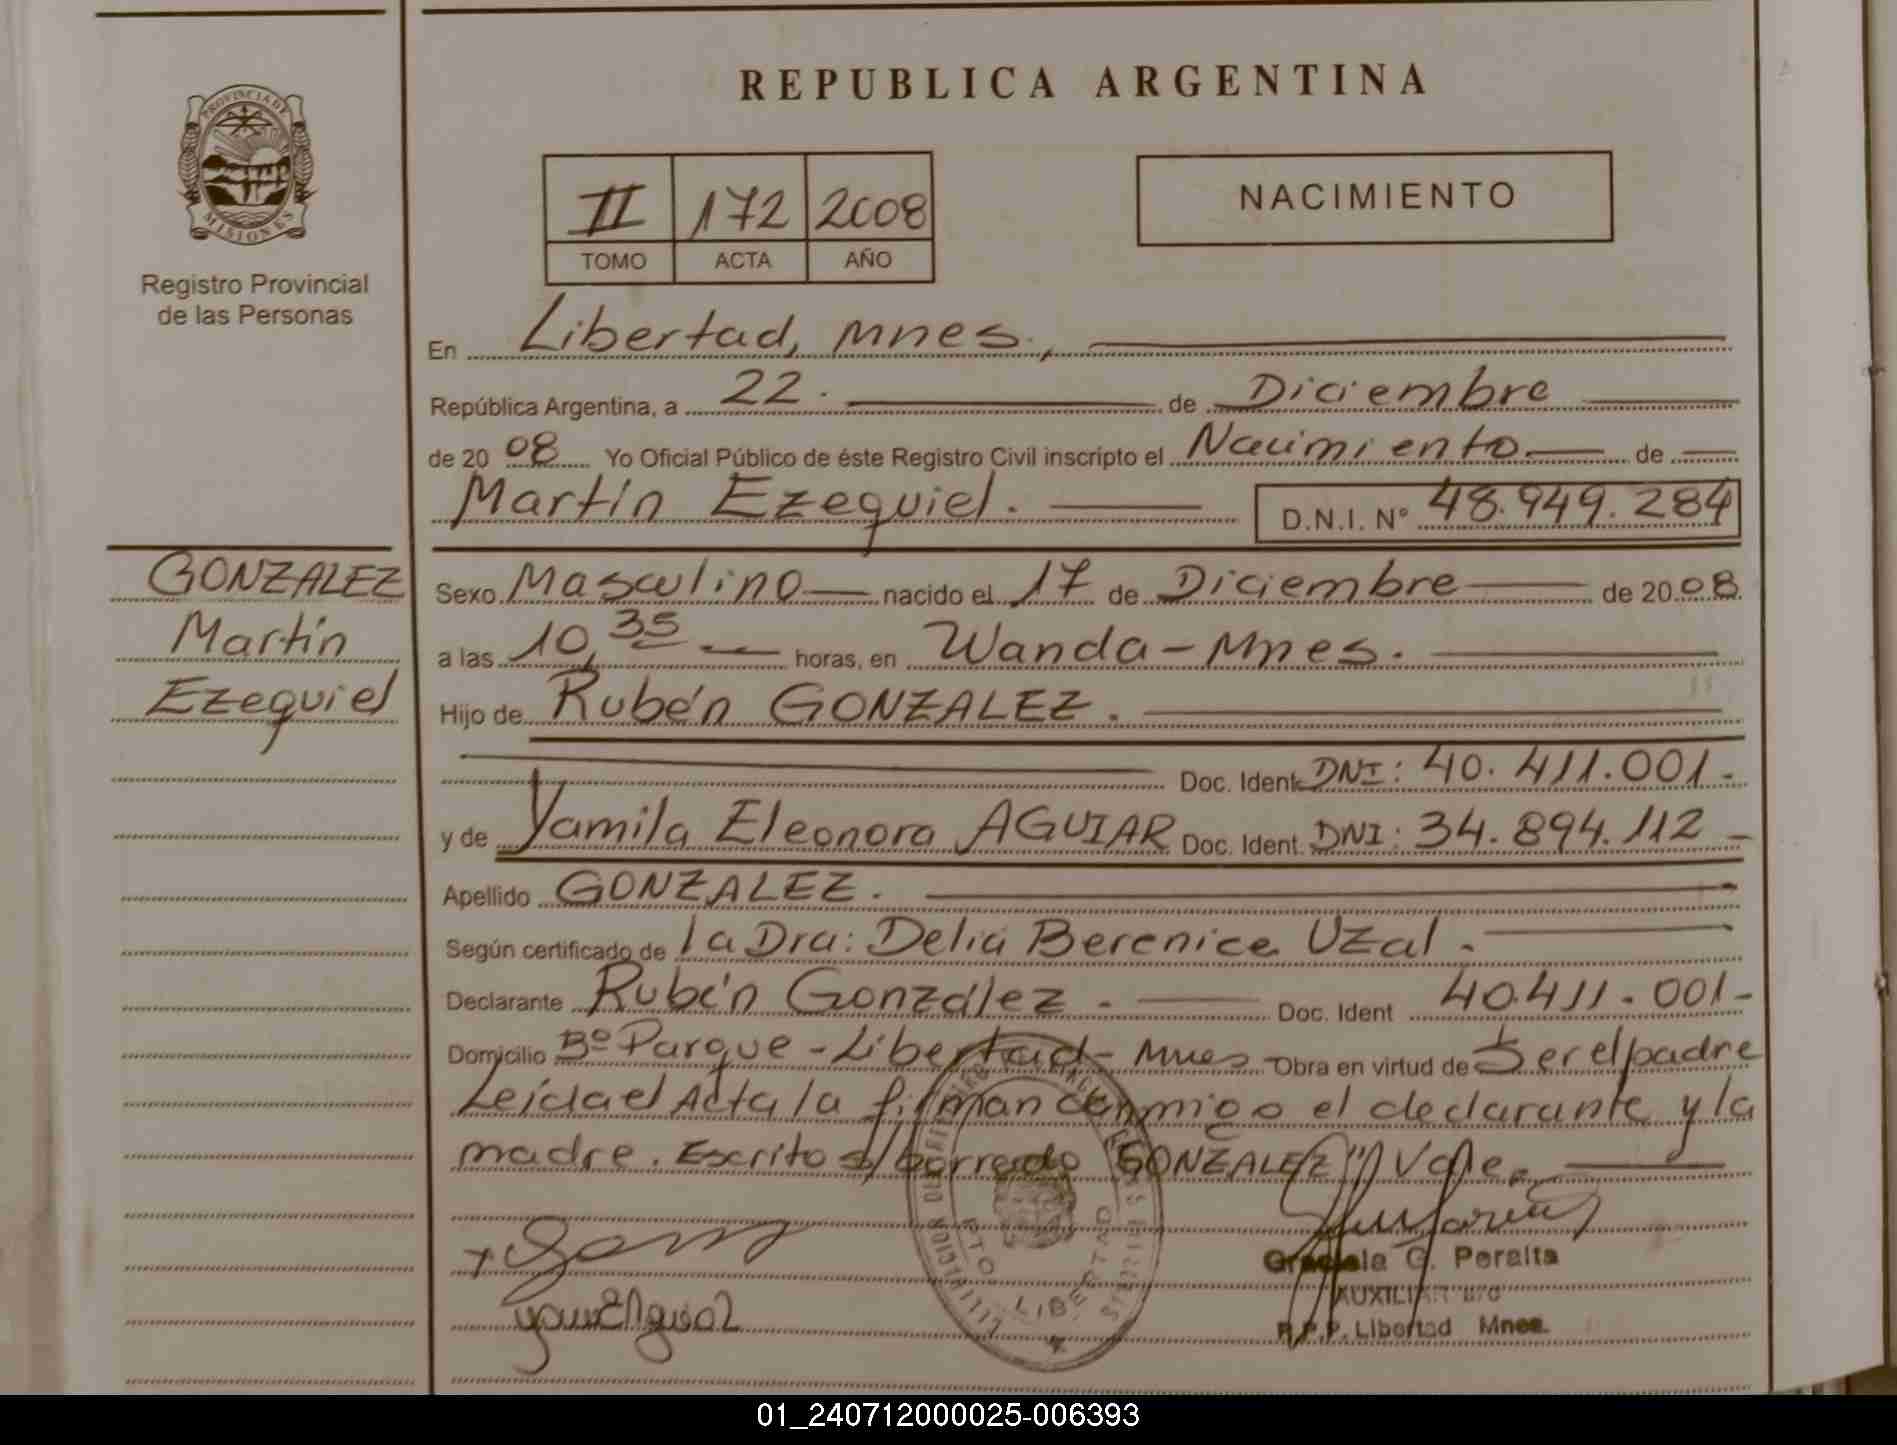 REPUBLICA ARGENTINA
PROVINCIA DE
MISIONES
Registro Provincial
de las Personas
II 172 2008
TOMO ACTA AÑO
NACIMIENTO
En Libertad, Mnes.,
República Argentina, a 22. de Diciembre
de 20 08 Yo Oficial Público de éste Registro Civil inscripto el Nacimiento de
Martín Ezequiel. D.N.I. Nº 48.949.284
GONZALEZ
Martín
Ezequiel
Sexo Masculino nacido el 17 de Diciembre de 20 08
a las 10,35 horas, en Wanda - Mnes.
Hijo de Rubén GONZALEZ.
Doc. Ident. DNI: 40.411.001.-
y de Yamila Eleonora AGUIAR Doc. Ident. DNI: 34.894.112 -
Apellido GONZALEZ.
Según certificado de la Dra: Delia Berenice Uzal.
Declarante Rubén González. - Doc. Ident 40.411.001-
Domicilio Bº Parque - Libertad - Mnes - Obra en virtud de Ser el padre
Leída el Acta la firman conmigo el declarante y la
madre. Escrito s/borrado "GONZALEZ" Vale.
LIBERTAD
Graciela G. Peralta
AUXILIAR
R.P.P. Libertad Mnes.
01_240712000025-006393